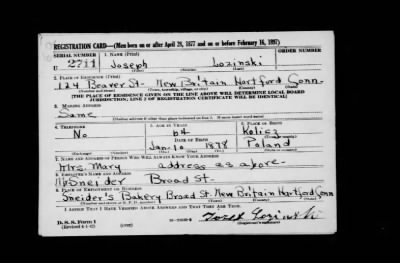 REGISTRATION CARD—(Men born on or after April 28, 1877 and on or before February 16, 1897)
SERIAL NUMBER 1. NAME (Print) ORDER NUMBER
U 2711 Joseph Lozinski
2. PLACE OF RESIDENCE (Print)
124 Beaver St. New Britain Hartford Conn.
(THE PLACE OF RESIDENCE GIVEN ON THE LINE ABOVE WILL DETERMINE LOCAL BOARD
JURISDICTION; LINE 2 OF REGISTRATION CERTIFICATE WILL BE IDENTICAL)
3. MAILING ADDRESS
Same
4. TELEPHONE 5. AGE IN YEARS 6. PLACE OF BIRTH
No 64 Kolicz
DATE OF BIRTH
Jan. 10 1878 Poland
7. NAME AND ADDRESS OF PERSON WHO WILL ALWAYS KNOW YOUR ADDRESS
Mrs. Mary address as above
8. EMPLOYER'S NAME AND ADDRESS
Mr Sneider Broad St.
9. PLACE OF EMPLOYMENT OR BUSINESS
Sneider's Bakery Broad St. New Britain Hartford Conn
I AFFIRM THAT I HAVE VERIFIED ABOVE ANSWERS AND THAT THEY ARE TRUE.
D. S. S. Form 1
(Revised 4-1-42) (over)